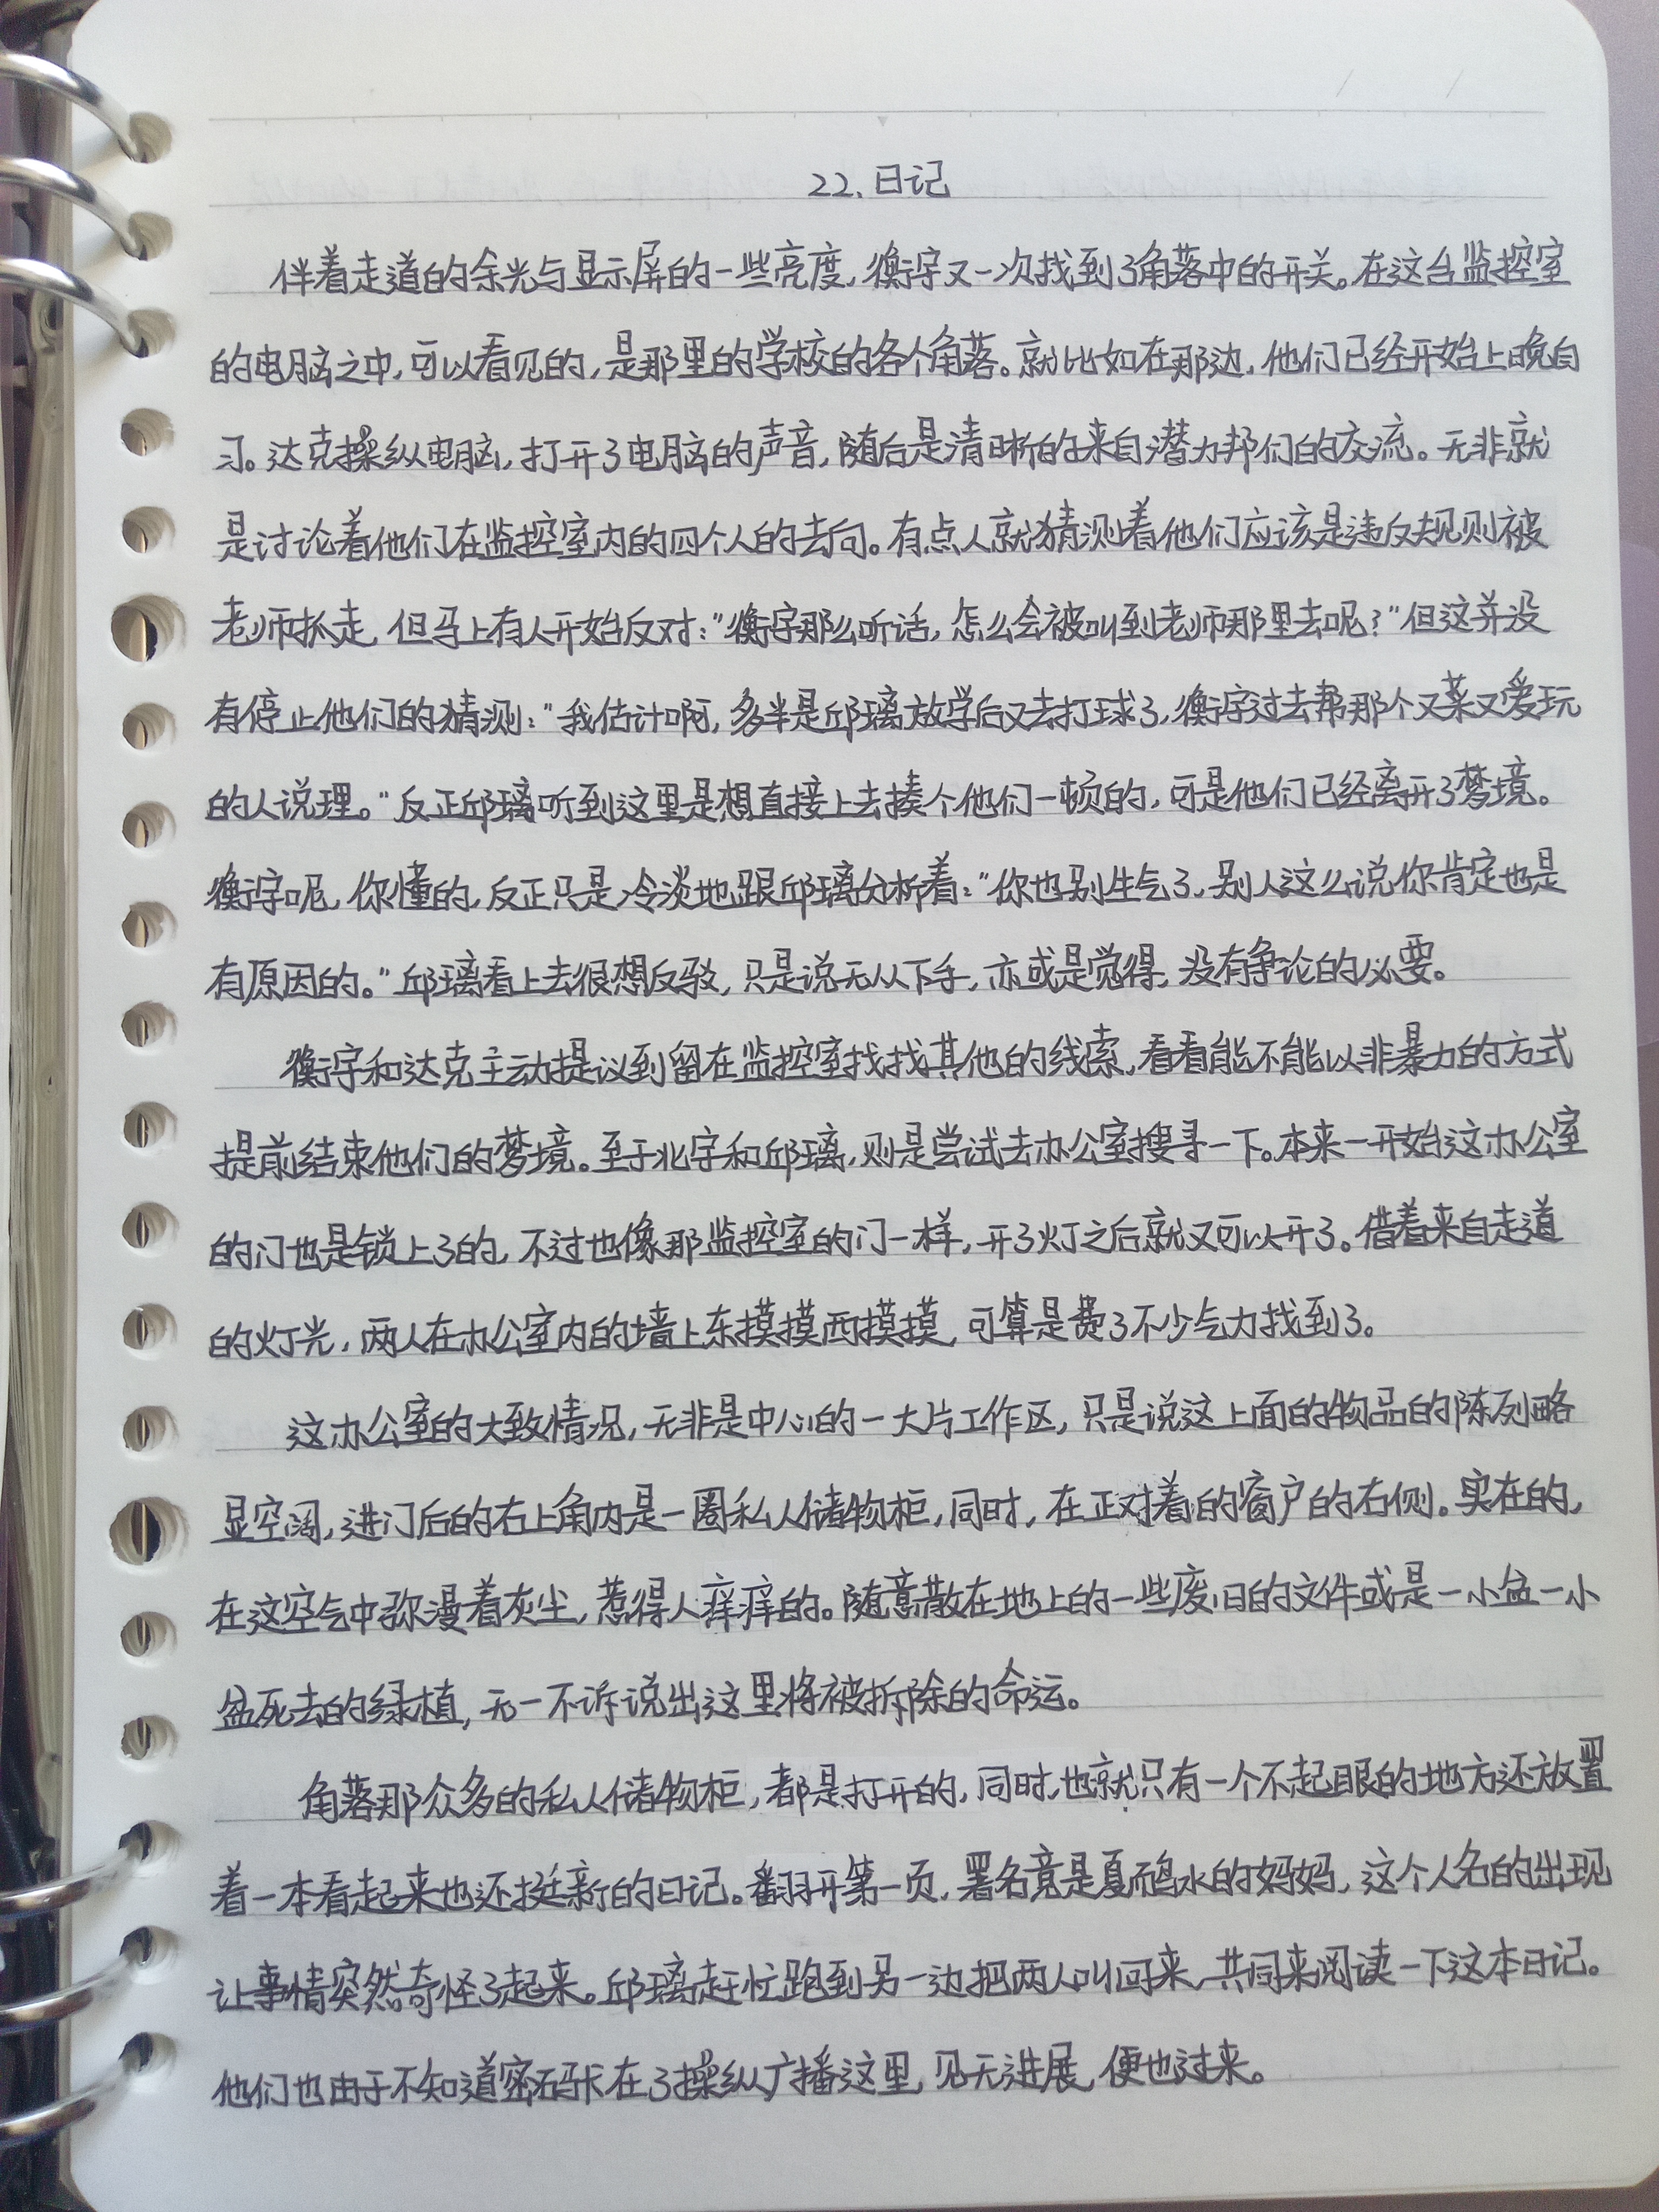 22. 日记
伴着走道的余光与显示屏的一些亮度,衡宇又一次找到了角落中的开关。在这台监控室
的电脑之中,可以看见的,是那里的学校的各个角落。就比如在那边,他们已经开始上晚自
习。达克操纵电脑,打开了电脑的声音,随后是清晰的来自潜力邦们的交流。无非就
是讨论着他们在监控室内的四个人的去向。有点人就猜测着他们应该是违反规则被
老师抓走,但马上有人开始反对:"衡宇那么听话,怎么会被叫到老师那里去呢?"但这并没
有停止他们的猜测:"我估计啊,多半是邱璃放学后又去打球了,衡宇过去帮那个又菜又爱玩
的人说理。"反正邱璃听到这里是想直接上去揍个他们一顿的,可是他们已经离开了梦境。
衡宇呢,你懂的,反正只是冷淡地跟邱璃分析着:"你也别生气了,别人这么说你肯定也是
有原因的。"邱璃看上去很想反驳,只是说无从下手,亦或是觉得,没有争论的必要。
衡宇和达克主动提议到留在监控室找找其他的线索,看看能不能以非暴力的方式
提前结束他们的梦境。至于北宇和邱璃,则是尝试去办公室搜寻一下。本来一开始这办公室
的门也是锁上了的,不过也像那监控室的门一样,开了灯之后就又可以开了。借着来自走道
的灯光,两人在办公室内的墙上东摸摸西摸摸,可算是费了不少气力找到了。
这办公室的大致情况,无非是中心的一大片工作区,只是说这上面的物品的陈列略
显空阔,进门后的右上角内是一圈私人储物柜,同时,在正对着的窗户的右侧。实在的,
在这空气中弥漫着灰尘,惹得人痒痒的。随意散在地上的一些废旧的文件或是一小盆一小
盆死去的绿植,无一不诉说出这里将被拆除的命运。
角落那众多的私人储物柜,都是打开的,同时,也就只有一个不起眼的地方还放置
着一本看起来也还挺新的日记。翻开第一页,署名竟是夏而鸣水的妈妈,这个人名的出现
让事情突然奇怪了起来。邱璃赶忙跑到另一边把两人叫回来,共同来阅读一下这本日记。
他们也由于不知道密码卡在了操纵广播这里,见无进展,便也过来。